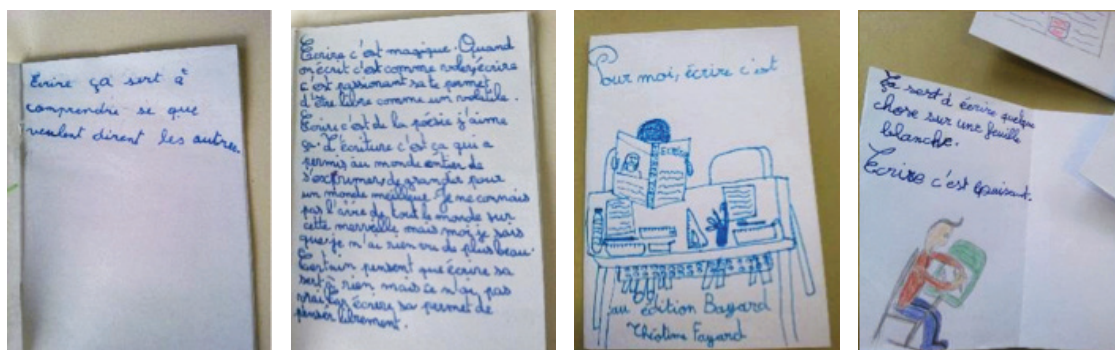 Ecrire ça sert à
comprendre se que
veulent dirent les autres.
Ecrire c'est magique. Quand
on écrit c'est comme voler, écrire
c'est passionant sa te permet
d'être libre comme un volatile.
Ecrire c'est de la poésie j'aime
ça. L'écriture c'est ça qui a
permis au monde entier de
s'exprimer, de grandir pour
un monde meilleur. Je ne connais
pas l'avie de tout le monde sur
cette merveille mais moi je sais
que je n'ai rien vu de plus beau.
Certain pensent que écrire sa
sert à rien mais ce n'ai pas
vrai car écrire sa permet de
penser librement.
Pour moi, écrire c'est
au édition Bayard
Théotime Fayard
Ça sert à écrire quelque
chose sur une feuille
blanche.
Ecrire c'est épuisant.